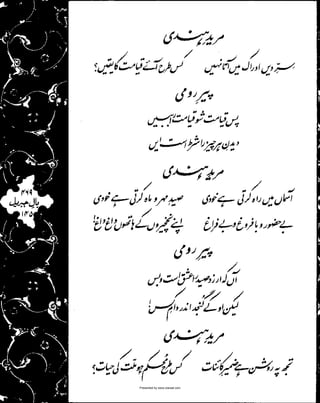 مریدِ ہندی
سرِّ دیں ادراک میں آتا نہیں کس طرح آئے قیامت کا یقیں؟
پیرِ رومی
پس قیامت شو قیامت را ببیں
دیدنِ ہر چیز را شرط است ایں
مریدِ ہندی
آسماں میں راہ کرتی ہے خودی صیدِ مہر و ماہ کرتی ہے خودی
بے حضور و با فروغ و بے فراغ اپنے نخچیروں کے ہاتھوں داغ داغ!
پیرِ رومی
آں کہ ارزد صید را عشق است و بس
لیکن او کے گنجد اندر دامِ کس!
مریدِ ہندی
تجھ پہ روشن ہے ضمیرِ کائنات کس طرح محکم ہو ملت کی حیات؟
بالِ جبریل
Presented by www.iqbalse.com